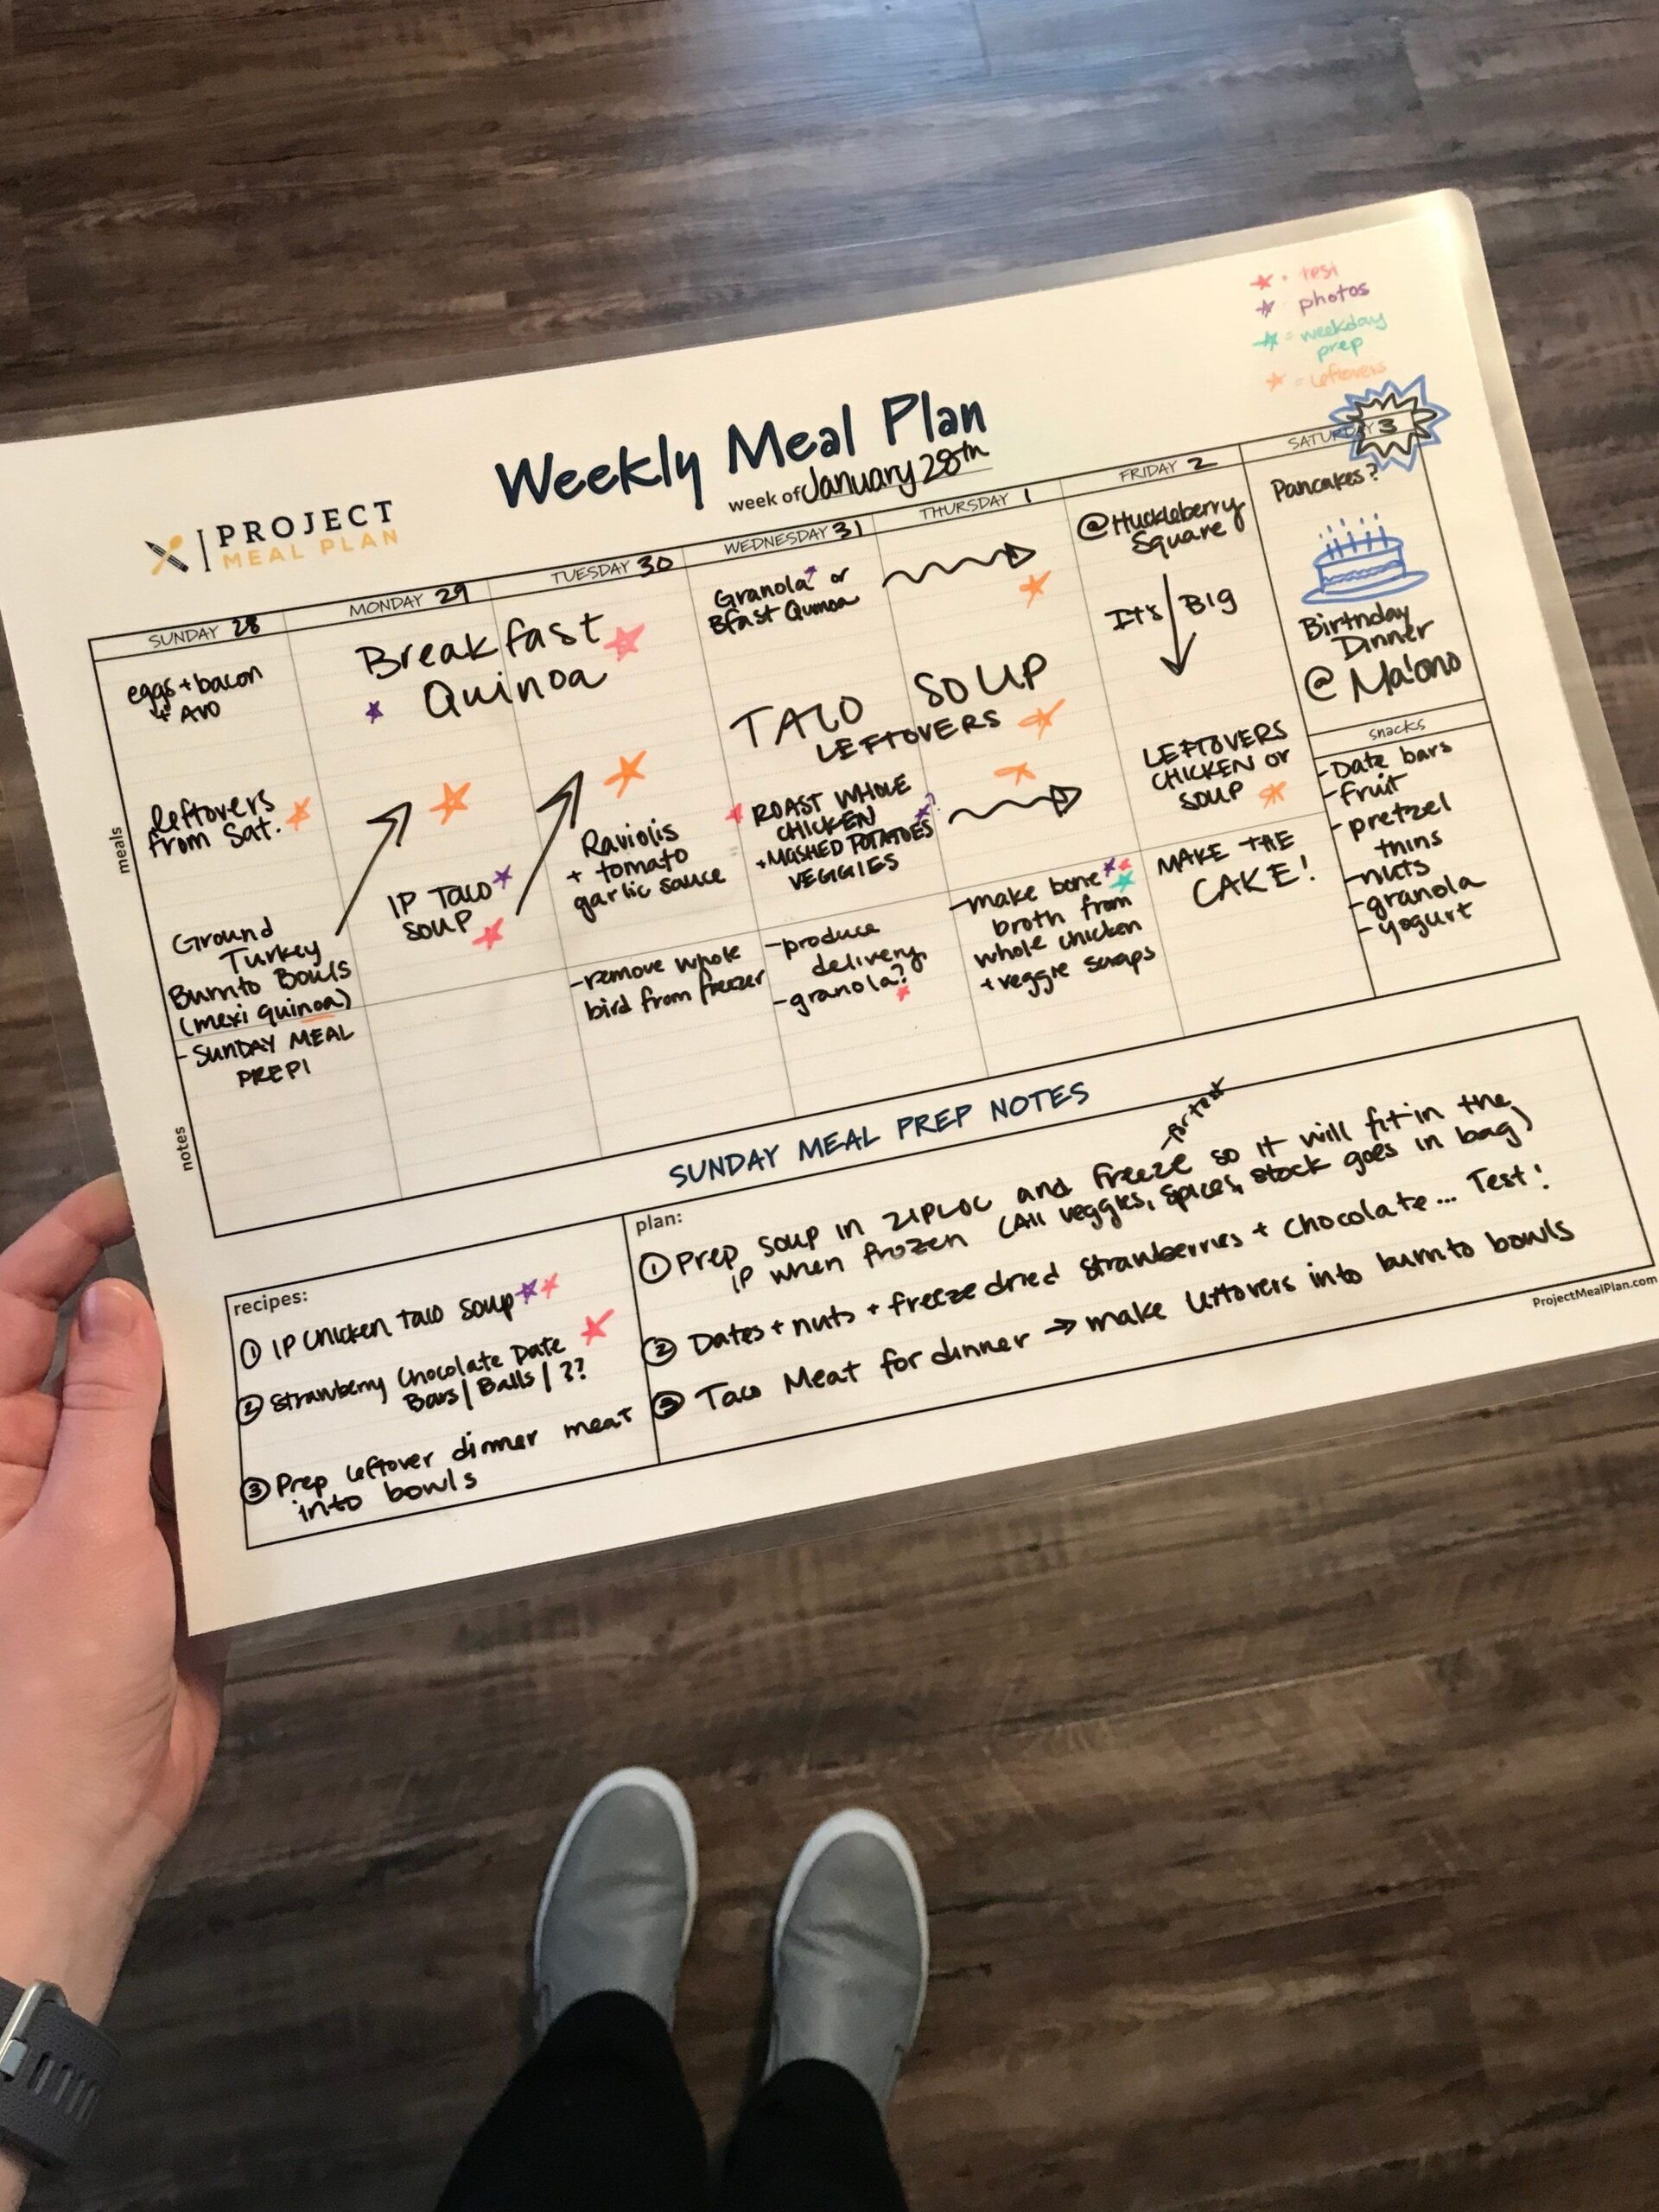 ★ = test
★ photos
★ = weekday
prep
★ = leftovers
PROJECT
MEAL PLAN
Weekly Meal Plan
week of January 28th
SUNDAY 28
eggs + bacon
+ AVO
leftovers
from Sat.
Ground
Turkey
Burrito Bowls
(mexi quinoa)
- SUNDAY MEAL
PREP!
MONDAY 29
TUESDAY 30
Breakfast
Quinoa
IP TACO
SOUP
Raviolis
+ tomato
garlic sauce
- remove whole
bird from freezer
WEDNESDAY 31
Granola or
Bfast Quinoa
THURSDAY 1
TACO SOUP
LEFTOVERS
ROAST WHOLE
CHICKEN
+ MASHED POTATOES
VEGGIES
- produce
delivery
- granola?
- make bone
broth from
whole chicken
+ veggie scraps
FRIDAY 2
@Huckleberry
Square
It's Big
LEFTOVERS
CHICKEN OR
SOUP
MAKE THE
CAKE!
SATURDAY 3
Pancakes?
Birthday
Dinner
@ Ma'ono
snacks
- Date bars
- fruit
- pretzel
thins
- nuts
- granola
- yogurt
meals
notes
SUNDAY MEAL PREP NOTES
recipes:
① IP Chicken Taco Soup
② Strawberry Chocolate Date
Bars / Balls / ??
③ Prep leftover dinner meat
into bowls
plan:
① Prep soup in ZIPLOC and freeze so it will fit in the
IP when frozen (All veggies, spices, stock goes in bag)
② Dates + nuts + freeze dried strawberries + chocolate... Test!
③ Taco Meat for dinner → make leftovers into burrito bowls
ProjectMealPlan.com